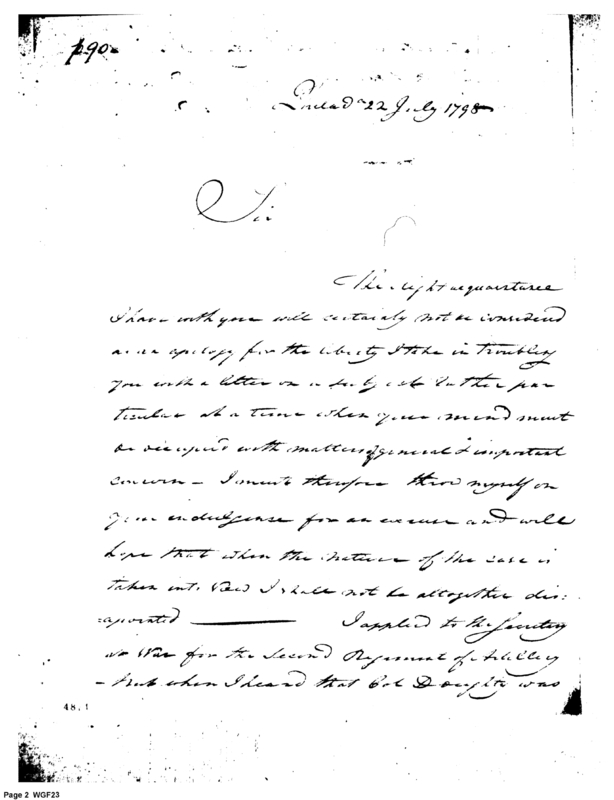 p 90
Philad<sup>a</sup> 22 July 1798
Sir
The slight acquaintance
I have with you will certainly not be considered
as an apology for the liberty I take in troubling
you with a letter on a subject rather par
ticular at a time when your mind must
be occupied with matters of general & important
concern – I must therefore throw myself on
your indulgense for an excuse and will
hope that when the nature of the case is
taken into view I shall not be altogether dis:
:apointed ——— I applied to the Secretary
of War for the Second Regiment of Artillery
– but when I heard that Col Doughty was
48.1
Page 2 WGF23